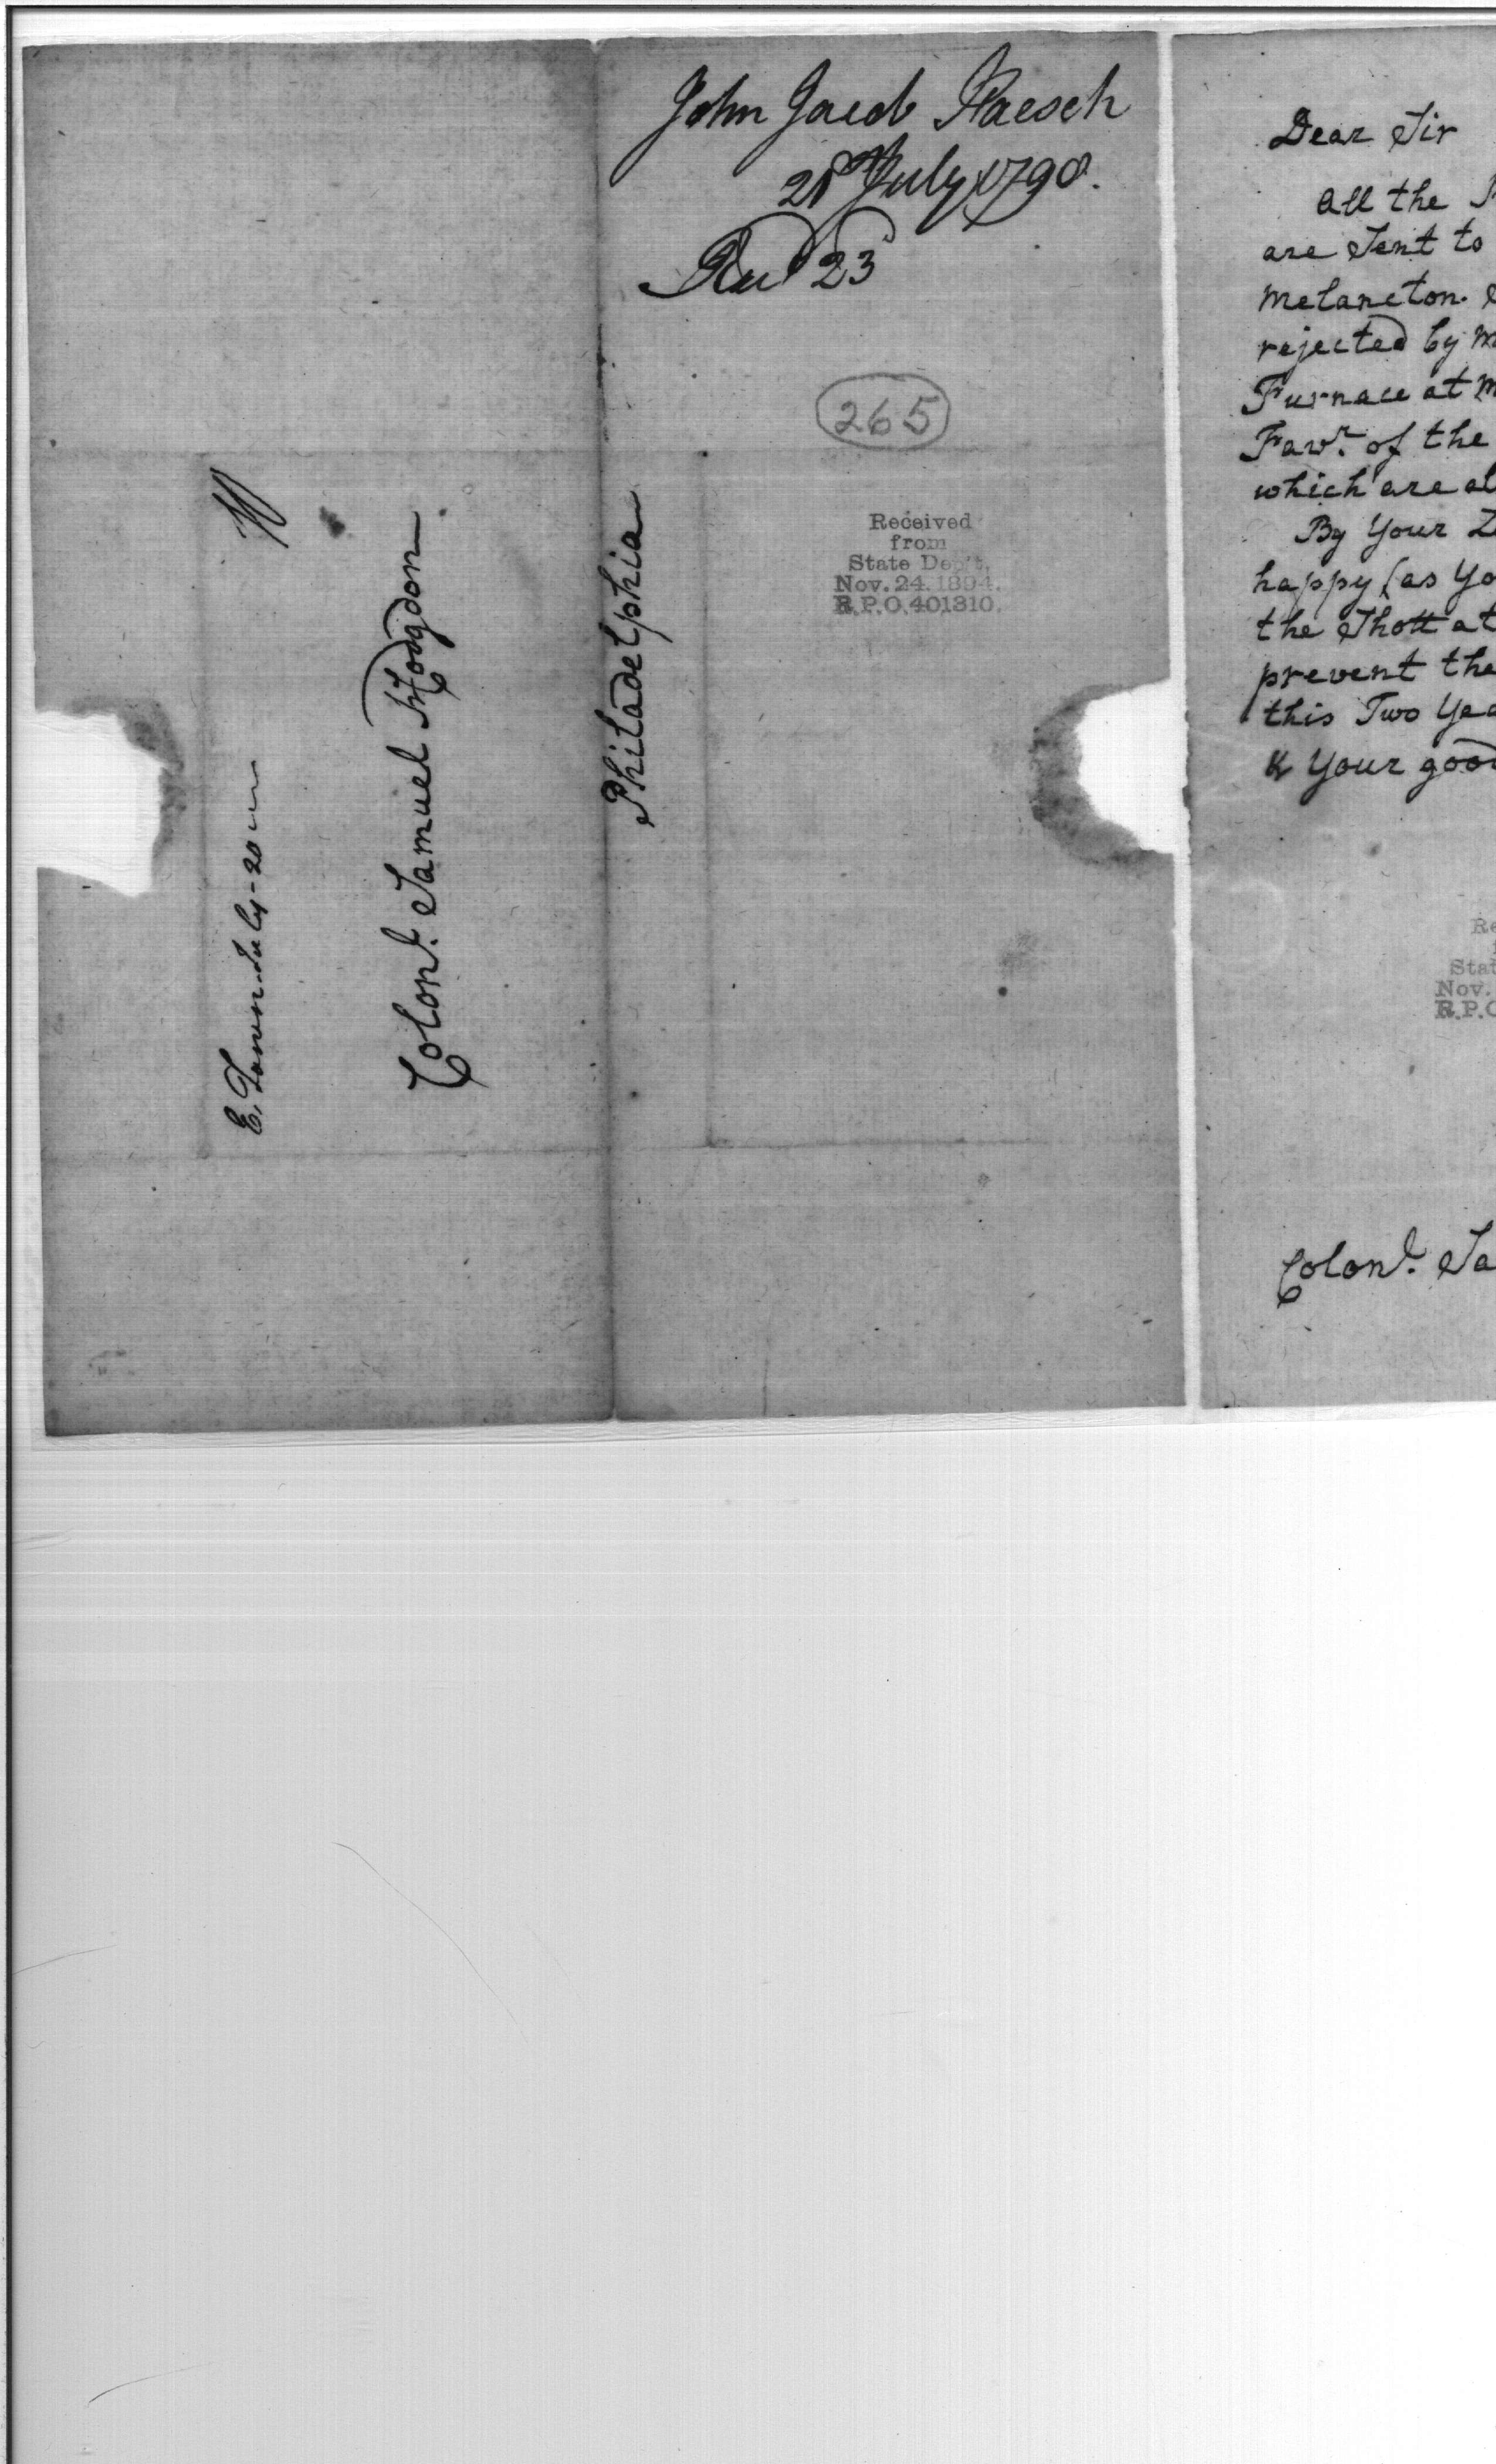 John Jacob Faesch
21st July 1790.
Recd 23
265
Received
from
State Dep't.
Nov. 24. 1894.
R.P.O. 401310.
E. Town July-20
10
Colonl. Samuel Hodgdon
Philadelphia
Dear Sir
All the
are Sent to
Melancton.
rejected by
Furnace at
Favr. of the
which are
By Your
happy (as
the Shott at
prevent the
this Two
& Your good
Nov.
Colonl.